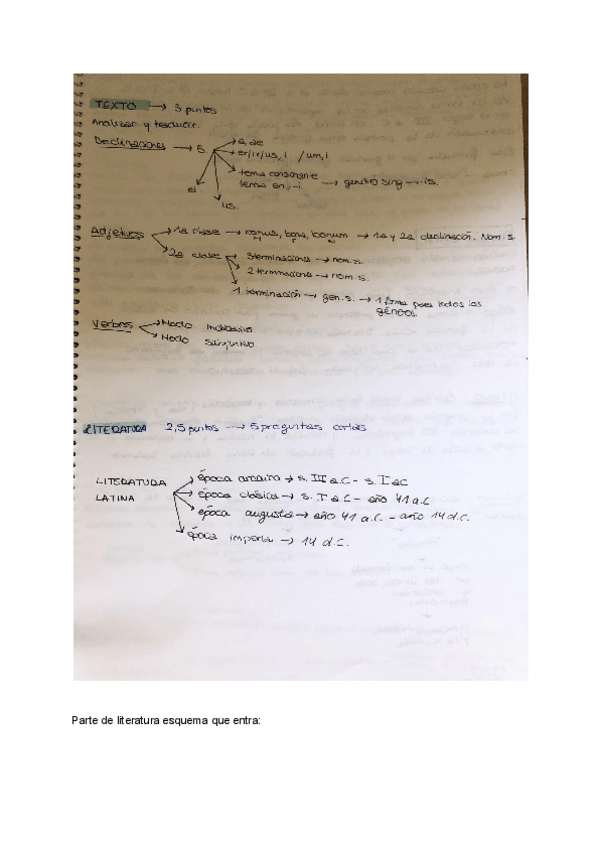 TEXTO → 3 puntos
Analizar y traducir.
Declinaciones → 5 → a, ae
er/ir/us, i / um, i
tema consonante
tema en -i → genitivo sing → is.
ei
us.
Adjetivos → 1a clase → bonus, bona, bonum → 1a y 2a declinación. Nom. s.
2a clase → 3 terminaciones → nom. s.
2 terminaciones → nom. s.
1 terminación → gen. s. → 1 forma para todos los
géneros.
Verbos → Modo indicativo
Modo subjuntivo
LITERATURA 2,5 puntos → 5 preguntas cortas
LITERATURA → época arcaica → s. III a.C - s. I a.C
LATINA → época clásica → s. I a.C - año 41 a.C
época augusta → año 41 a.C. - año 14 d.C.
época imperia → 14 d.C.
Parte de literatura esquema que entra: